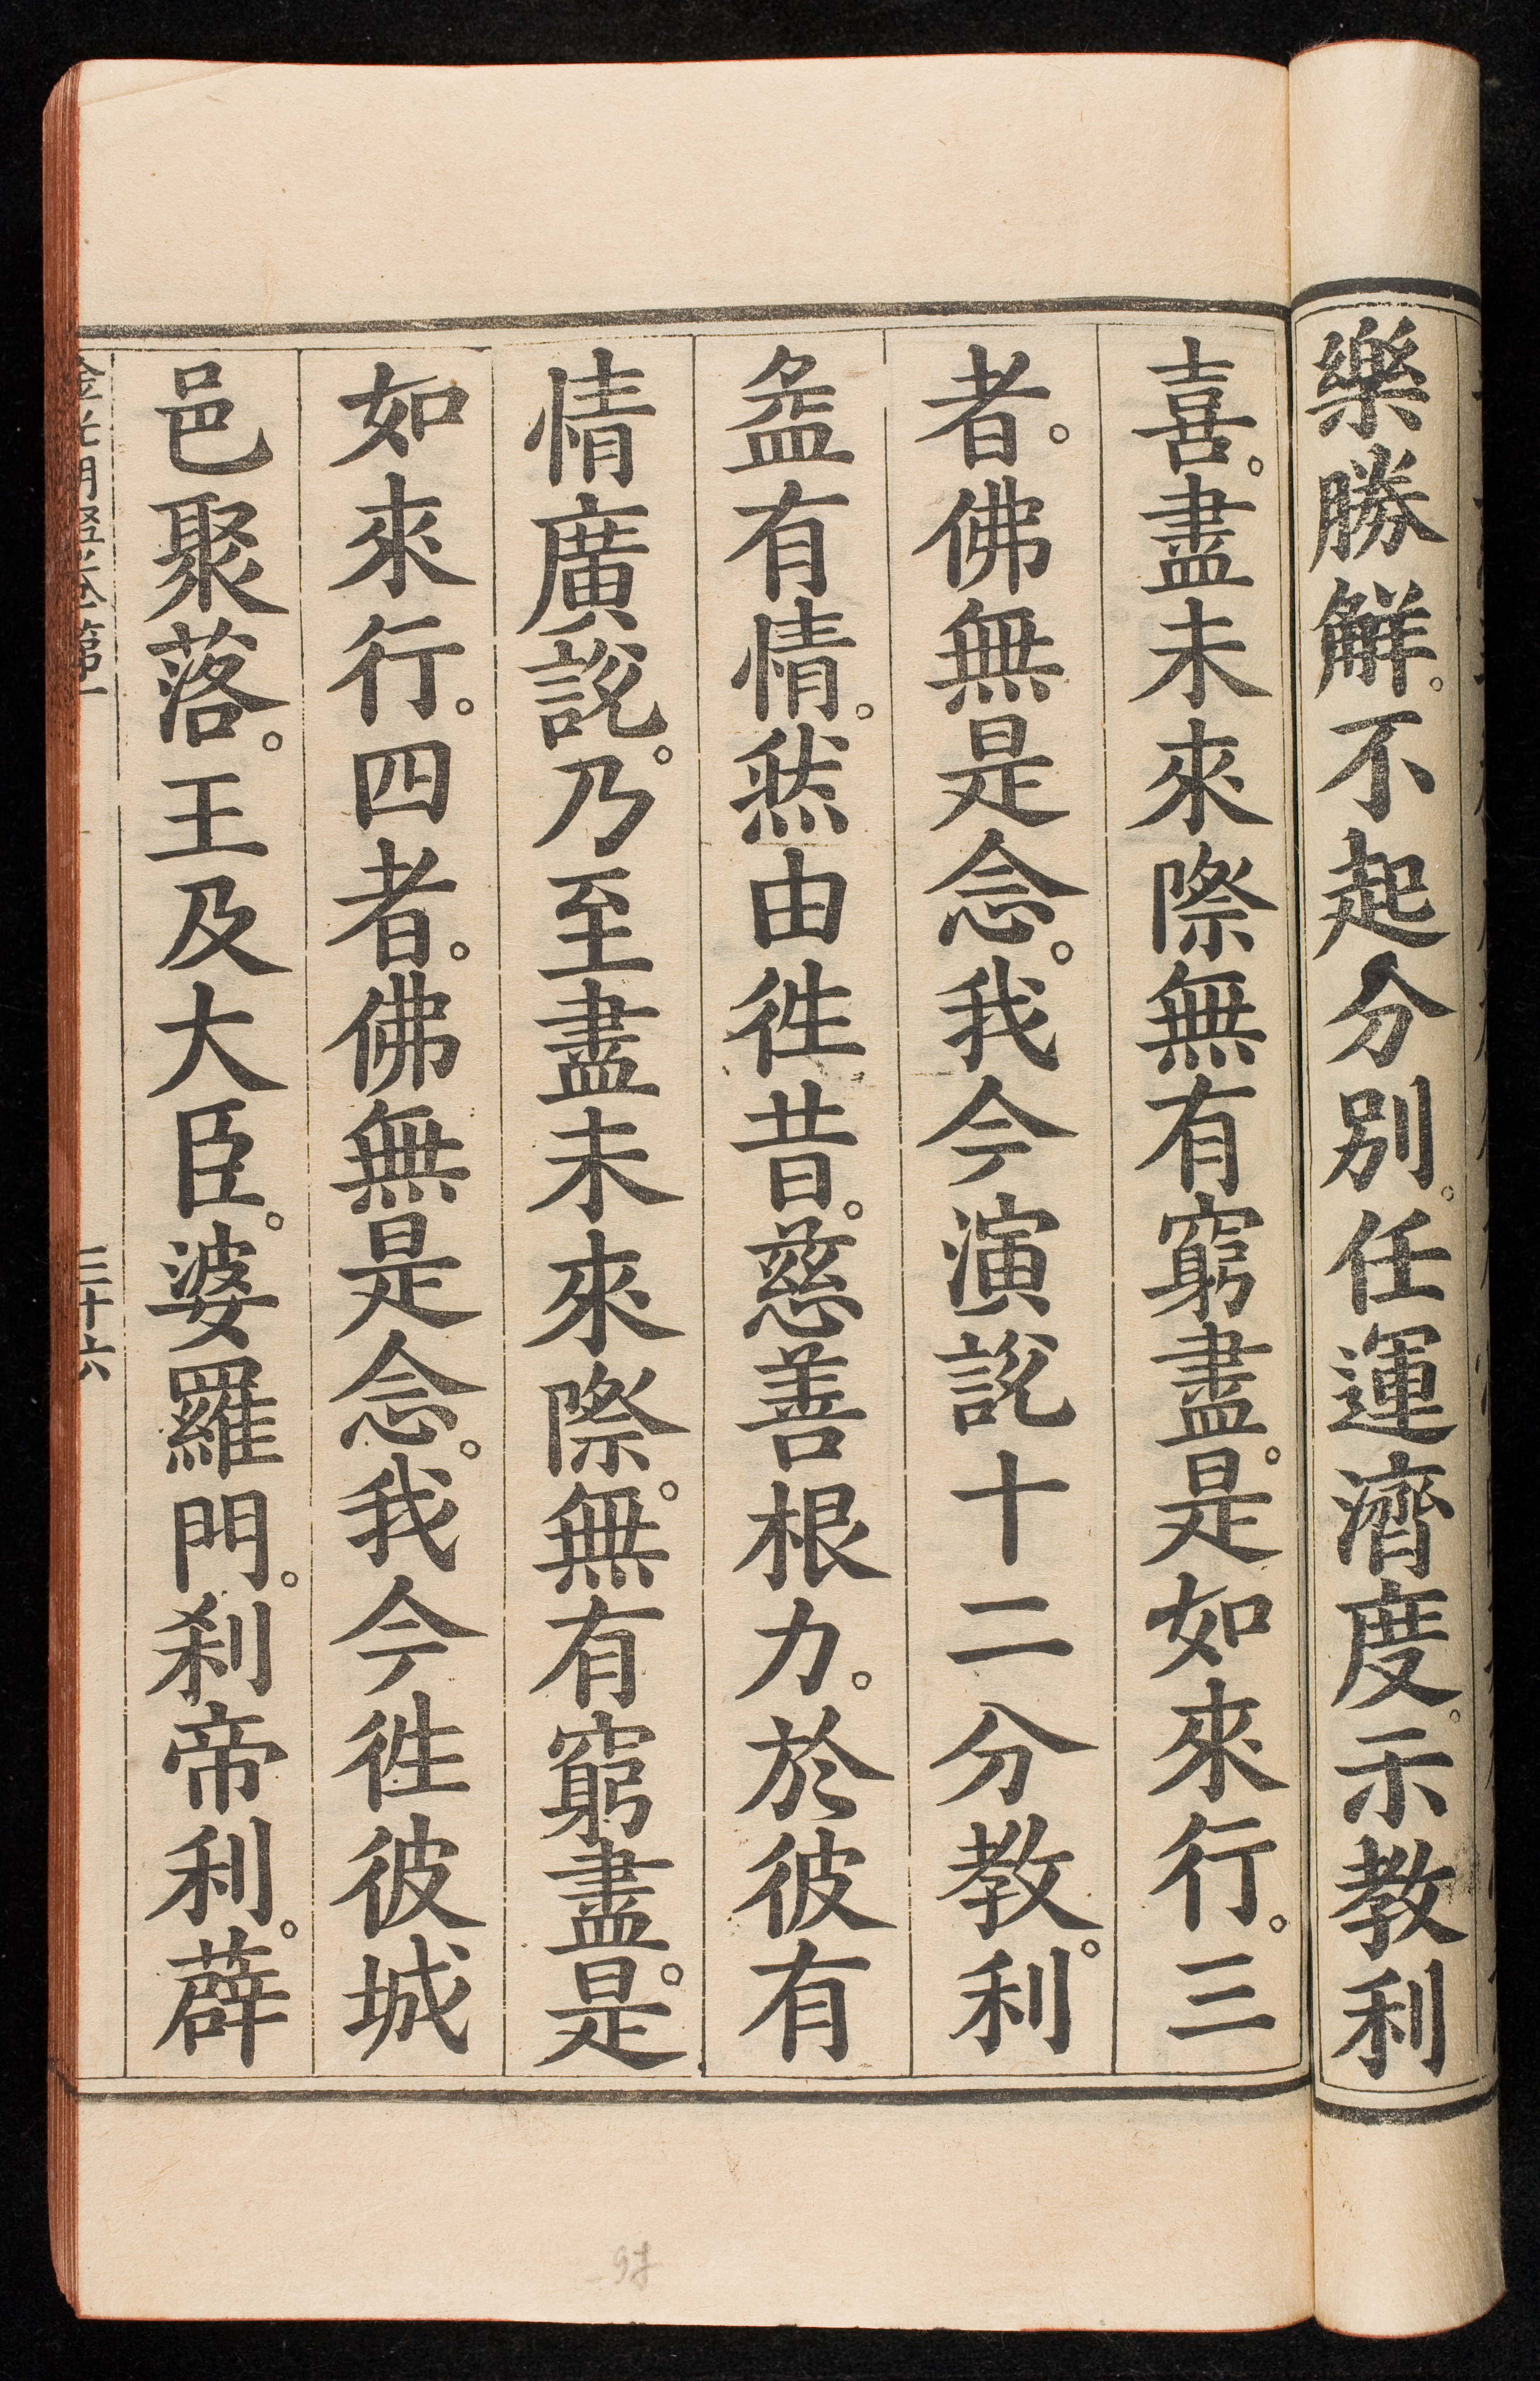 樂勝解。不起分別。任運濟度。示教利
喜。盡未來際無有窮盡。是如來行。三
者。佛無是念。我今演說十二分教。利
益有情。然由徃昔。慈善根力。於彼有
情廣說。乃至盡未來際。無有窮盡。是
如來行。四者。佛無是念。我今徃彼城
邑聚落。王及大臣。婆羅門。刹帝利。薜
金光明經卷第一
三十六
97